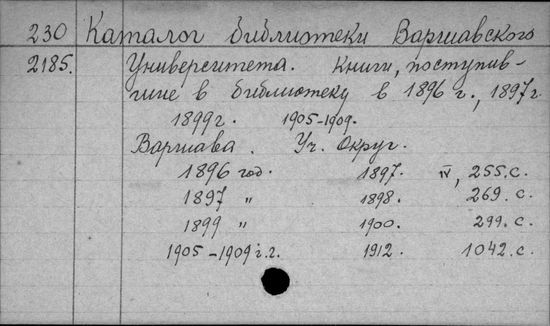 230 Каталог библиотеки Варшавского
2185. Университета. Книги, поступив-
шие в библиотеку в 1896 г., 1897 г.
1899 г. 1905-1909.
Варшава. Уч. Округ.
1896 год. 1897. IV, 255. с.
1897 " 1898. 269. с.
1899 " 1900. 299. с.
1905-1909 г.г. 1912. 1042. с.